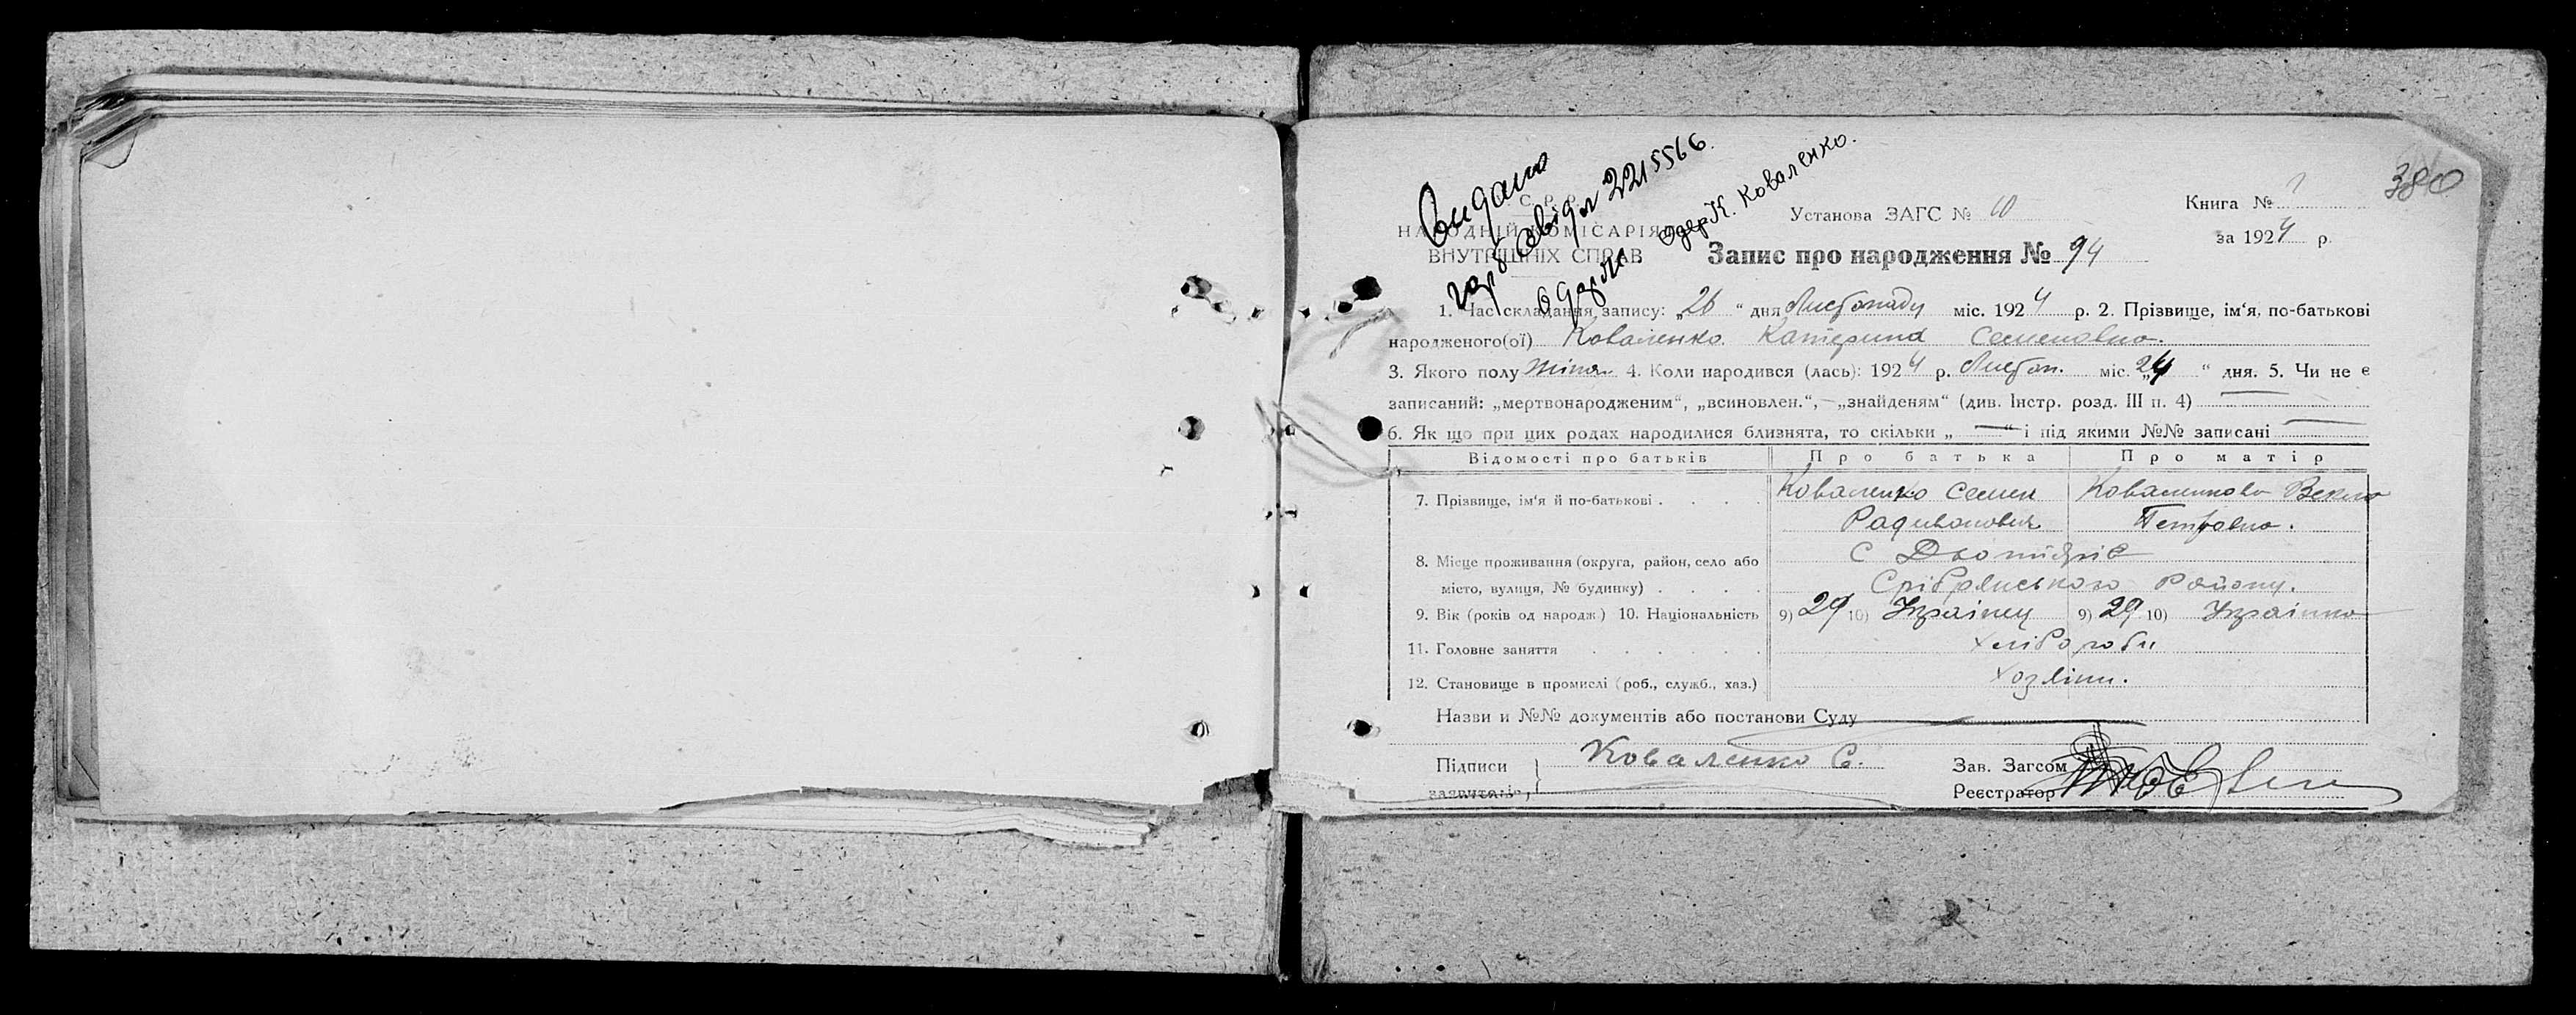 380
Видано
свідл 2215566.
Одер К. Коваленко.
С. Р. Р.
НАРОДНІЙ КОМІСАРІЯ
ВНУТРІШНІХ СПРАВ
Установа ЗАГС № 10
Книга №
за 1924 р.
Запис про народження № 94
1. Час складання запису: „26“ дня Листопаду міс. 1924 р. 2. Прізвище, ім‘я, по-батькові
народженого(ої) Коваленко Катерина Семеновна.
3. Якого полу жіноч. 4. Коли народився (лась): 1924 р. Листоп. міс. „24“ дня. 5. Чи не є
записаний: „мертвонародженим“, „всиновлен.“, „знайденям“ (див. Інстр. розд. III п. 4) —
6. Як що при цих родах народилися близнята, то скільки „—“ і під якими №№ записані —
Відомості про батьків Про батька Про матір
7. Прізвище, ім‘я й по-батькові . . . . Коваленко Семен Коваленкова Векла
Радивонович Петровна.
8. Місце проживання (округа, район, село або С
місто, вулиця, № будинку) . . . . Срібрянського Району.
9. Вік (років од народж.) 10. Національність 9) 29 10) Українец 9) 29 10) Українка
11. Головне заняття . . . . . . хлібороби
12. Становище в промислі (роб., служб., хаз.) хозяіни.
Назви и №№ документів або постанови Суду
Підписи Коваленко С. Зав. Загсом
заявителів, Реєстратор